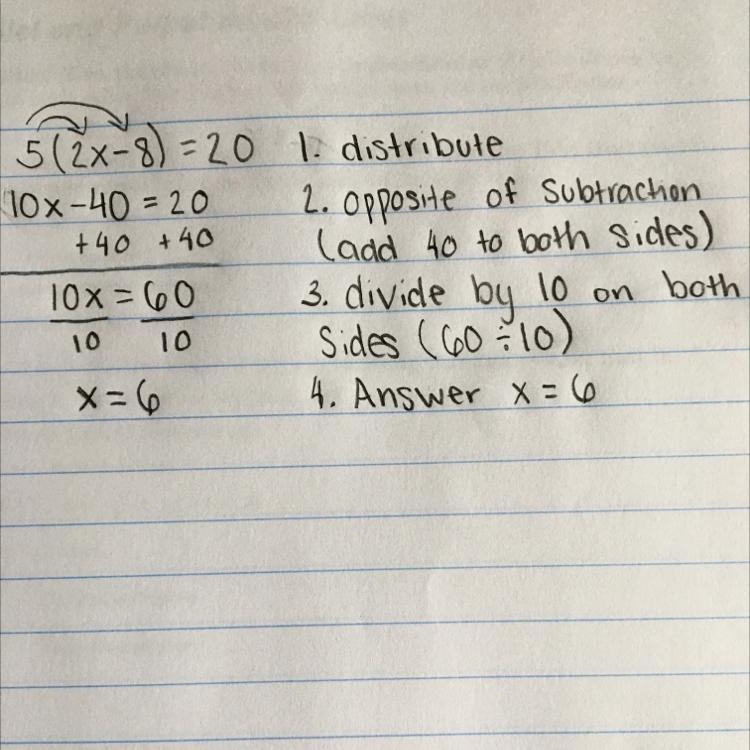 5(2x-8) = 20 1. distribute
10x-40 = 20 2. opposite of subtraction
+40 +40 (add 40 to both sides)
10x = 60 3. divide by 10 on both
10 10 sides (60 ÷ 10)
x = 6 4. Answer x = 6